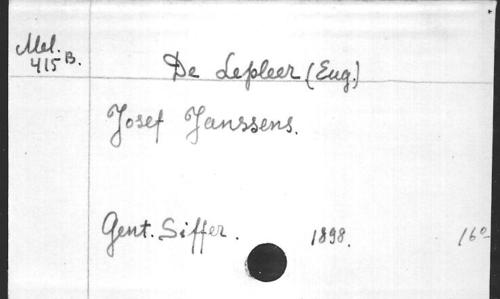 Mel.
415 B.
De Lepleer (Eug.)
Josef Janssens.
Gent. Siffer. 1898. 16º